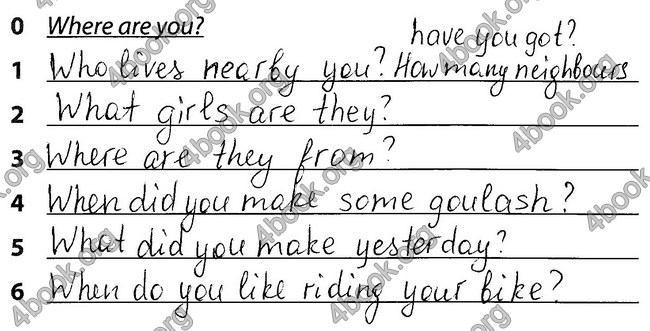 0 Where are you?
have you got?
1 Who lives nearby you? How many neighbours
2 What girls are they?
3 Where are they from?
4 When did you make some goulash?
5 What did you make yesterday?
6 When do you like riding your bike?
4book.org
4book.org
4book.org
4book.org
4book.org
4book.org
4book.org